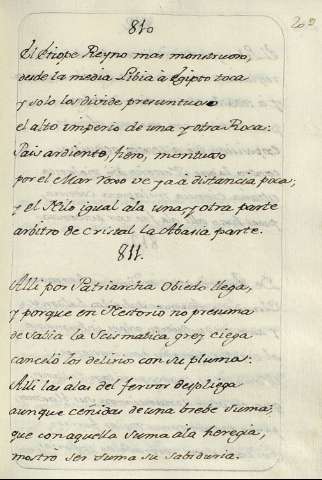 810
209
El Etiope Reyno mas monstruoso,
desde la media Libia à Egipto toca
y solo los divide presuntuoso
el alto imperio de una y otra Roca:
Pais ardiente, fiero, montuoso
por el Mar Roxo ve ya à distancia poca;
y el Nilo igual àla una y otra parte
arbitro de Cristal la Abasia parte.
811.
Alli por Patriarcha Obiedo llega,
y porque en Nestorio no presuma
de sabia la Scismatica grey ciega
cancelò los delirios con su pluma:
Alli las alas del fervor despliega
aunque ceñidas de una brebe suma,
que con aquella suma àla heregia,
mostrò ser suma su sabiduria.